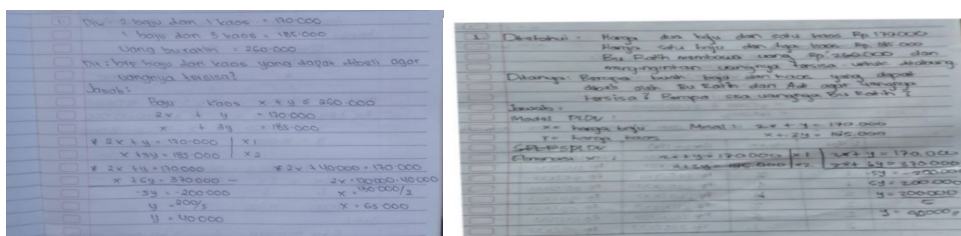 1. Dik: 2 baju dan 1 kaos = 170.000
1 baju dan 3 kaos = 185.000
Uang bu ratih = 260.000
Dit: brp baju dan kaos yang dapat dibeli agar
uangnya tersisa?
Jawab:
Baju Kaos x + y = 260.000
2x + y = 170.000
x + 3y = 185.000
* 2x + y = 170.000 | x1
x + 3y = 185.000 | x2
* 2x + y = 170000 * 2x + 40000 = 170.000
x + 6y = 370000 -
-5y = -200.000
y = 200/5 x = 65.000
y = 40.000
1. Diketahui: Harga dua baju dan satu kaos Rp. 170.000
Harga satu baju dan tiga kaos Rp. 185.000
Bu Ratih membawa uang Rp. 260.000 dan
menginginkan uangnya tersisa untuk ditabung
Ditanya: Berapa buah baju dan kaos yang dapat
dibeli oleh Bu Ratih dan agar uangnya
tersisa? Berapa sisa uangnya Bu Ratih?
Jawab:
Model
x = harga baju Misal: 2x + y = 170.000
y = harga kaos
Eliminasi x: 2x + y = 170.000 | x1 | 2x + y = 170.000
x2 | 2x + 6y = 370.000
-5y = -200.000
5y = 200.000
y = 200.000
5
y = 40000